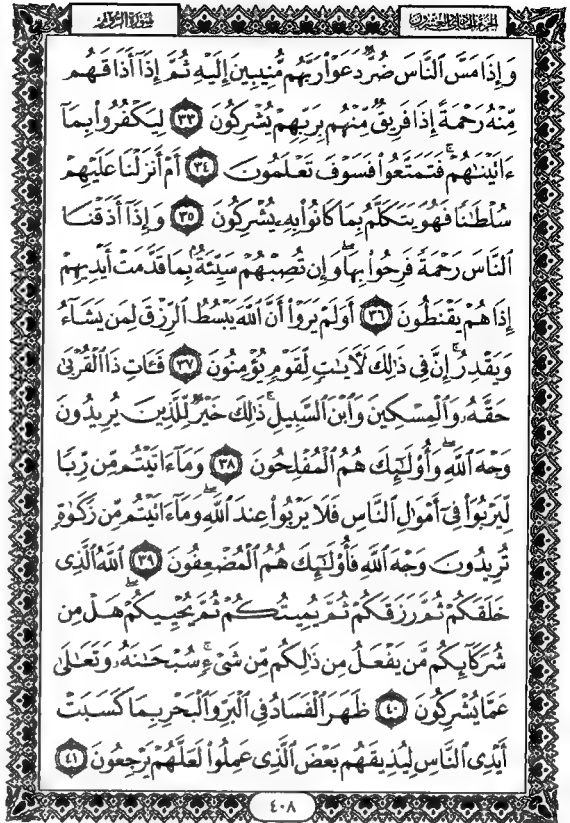 الجزء الحادي والعشرون
سورة الروم
وَإِذَا مَسَّ النَّاسَ ضُرٌّ دَعَوْا رَبَّهُم مُّنِيبِينَ إِلَيْهِ ثُمَّ إِذَا أَذَاقَهُم
مِّنْهُ رَحْمَةً إِذَا فَرِيقٌ مِّنْهُم بِرَبِّهِمْ يُشْرِكُونَ ٣٣ لِيَكْفُرُوا۟ بِمَآ
ءَاتَيْنَٰهُمْ ۚ فَتَمَتَّعُوا۟ فَسَوْفَ تَعْلَمُونَ ٣٤ أَمْ أَنزَلْنَا عَلَيْهِمْ
سُلْطَٰنًا فَهُوَ يَتَكَلَّمُ بِمَا كَانُوا۟ بِهِۦ يُشْرِكُونَ ٣٥ وَإِذَآ أَذَقْنَا
ٱلنَّاسَ رَحْمَةً فَرِحُوا۟ بِهَا ۖ وَإِن تُصِبْهُمْ سَيِّئَةٌۢ بِمَا قَدَّمَتْ أَيْدِيهِمْ
إِذَا هُمْ يَقْنَطُونَ ٣٦ أَوَلَمْ يَرَوْا۟ أَنَّ ٱللَّهَ يَبْسُطُ ٱلرِّزْقَ لِمَن يَشَآءُ
وَيَقْدِرُ ۚ إِنَّ فِى ذَٰلِكَ لَءَايَٰتٍ لِّقَوْمٍ يُؤْمِنُونَ ٣٧ فَـَٔاتِ ذَا ٱلْقُرْبَىٰ
حَقَّهُۥ وَٱلْمِسْكِينَ وَٱبْنَ ٱلسَّبِيلِ ۚ ذَٰلِكَ خَيْرٌ لِّلَّذِينَ يُرِيدُونَ
وَجْهَ ٱللَّهِ ۖ وَأُو۟لَٰٓئِكَ هُمُ ٱلْمُفْلِحُونَ ٣٨ وَمَآ ءَاتَيْتُم مِّن رِّبًا
لِّيَرْبُوَا۟ فِىٓ أَمْوَٰلِ ٱلنَّاسِ فَلَا يَرْبُوا۟ عِندَ ٱللَّهِ ۖ وَمَآ ءَاتَيْتُم مِّن زَكَوٰةٍ
تُرِيدُونَ وَجْهَ ٱللَّهِ فَأُو۟لَٰٓئِكَ هُمُ ٱلْمُضْعِفُونَ ٣٩ ٱللَّهُ ٱلَّذِى
خَلَقَكُمْ ثُمَّ رَزَقَكُمْ ثُمَّ يُمِيتُكُمْ ثُمَّ يُحْيِيكُمْ ۖ هَلْ مِن
شُرَكَآئِكُم مَّن يَفْعَلُ مِن ذَٰلِكُم مِّن شَىْءٍ ۚ سُبْحَٰنَهُۥ وَتَعَٰلَىٰ
عَمَّا يُشْرِكُونَ ٤٠ ظَهَرَ ٱلْفَسَادُ فِى ٱلْبَرِّ وَٱلْبَحْرِ بِمَا كَسَبَتْ
أَيْدِى ٱلنَّاسِ لِيُذِيقَهُم بَعْضَ ٱلَّذِى عَمِلُوا۟ لَعَلَّهُمْ يَرْجِعُونَ ٤١
٤٠٨